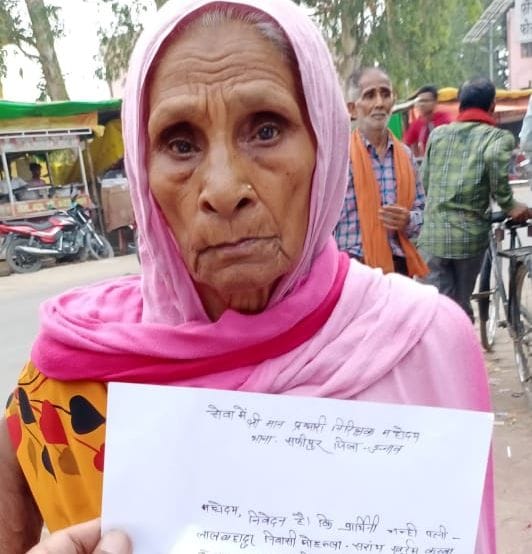 सेवा में
श्री मान प्रभारी निरीक्षक महोदय
थाना- सफीपुर जिला- उन्नाव
महोदय, निवेदन है। कि प्रार्थिनी नन्ही पत्नी-
लालबहादुर निवासी मोहल्ला- सराय